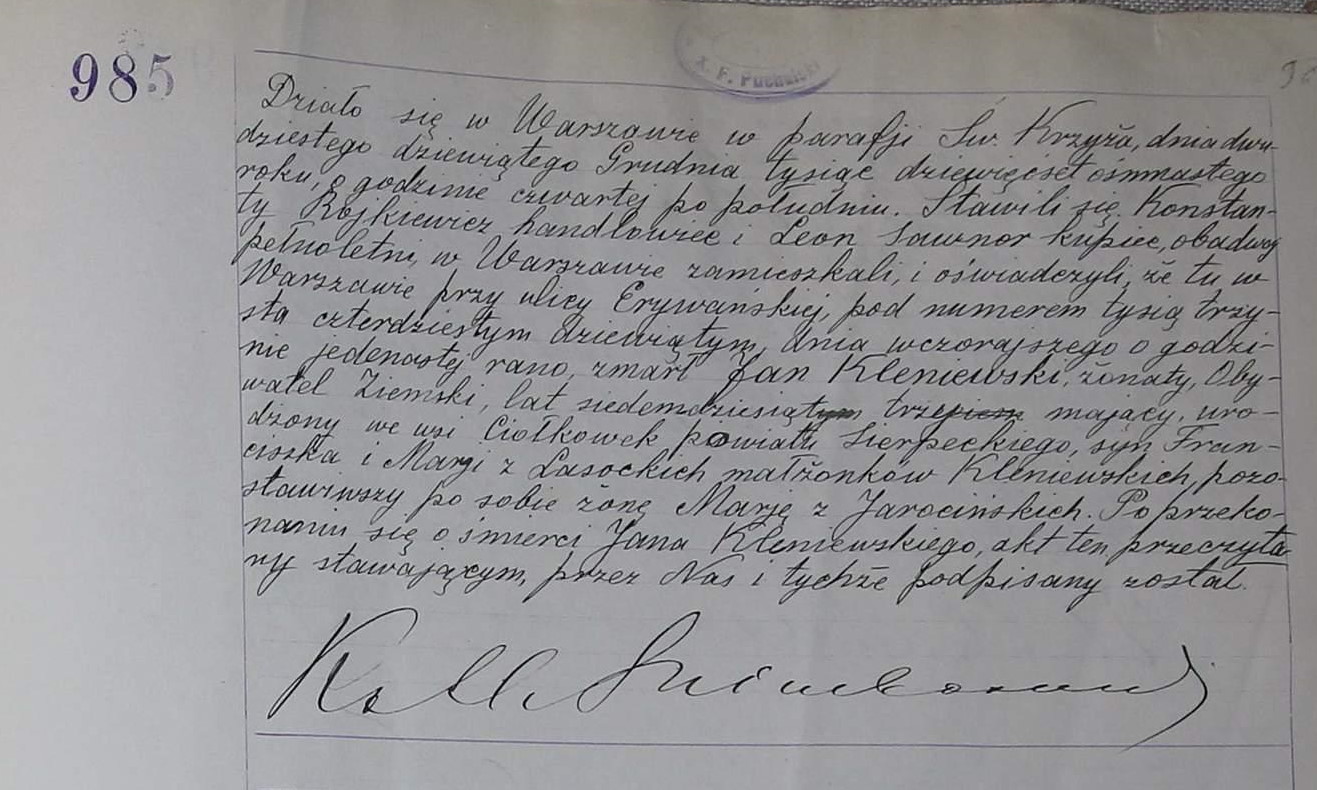 985
X. F. Puchalski
Działo się w Warszawie w parafji Św. Krzyża, dnia dwu-
dziestego dziewiątego Grudnia tysiąc dziewięćset ośmnastego
roku, o godzinie czwartej po południu. Stawili się Konstan-
ty Rojkiewicz handlowiec i Leon kupiec, obadwaj
pełnoletni, w Warszawie zamieszkali, i oświadczyli, że tu, w
Warszawie przy ulicy Erywańskiej, pod numerem tysią trzy-
sta czterdziestym dziewiątym, dnia wczorajszego o godzi-
nie jedenastej rano, zmarł Jan Kleniewski, żonaty, Oby-
watel Ziemski, lat siedemdziesiątym trzy mający, uro-
dzony we wsi Ciołkowek powiatu Sierpeckiego, syn Fran-
ciszka i Marji z Lasockich małżonków Kleniewskich, pozo-
stawiwszy po sobie żonę Marję z Jarocińskich. Po przeko-
naniu się o śmierci Jana Kleniewskiego, akt ten przeczyta-
ny stawającym, przez Nas i tychże podpisany został.